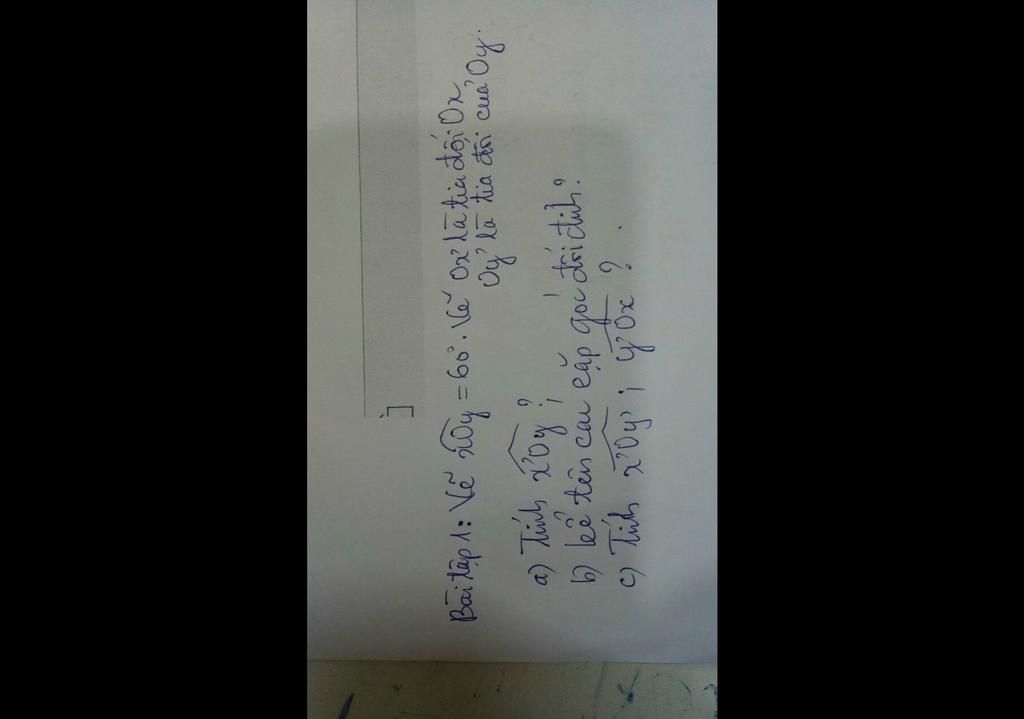 Bài tập 1: Vẽ xOy = 60°. Vẽ Ox' là tia đối Ox,
Oy' là tia đối của Oy.
a) Tính x'Oy ?
b) kể tên các cặp góc đối đỉnh?
c) Tính x'Oy' ; y'Ox ?